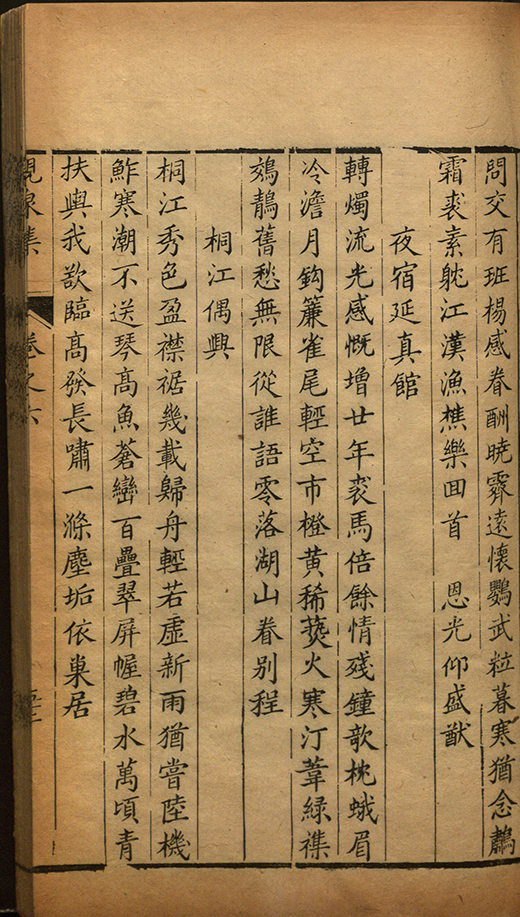 問交有班楊感眷酬曉霽遠懷鸚武粒暮寒猶念鷫
霜裘素躭江漢漁樵樂囬首　恩光仰盛猷
夜宿延真館
轉燭流光感慨增廿年裘馬倍餘情殘鐘歌枕蛾眉
冷澹月鈎簾雀尾輕空市橙黄稀爇火寒汀葦緑襍
鵁鶄舊愁無限從誰語零落湖山眷别程
桐江偶興
桐江秀色盈襟裾幾載歸舟輕若虛新雨猶嘗陸機
鮓寒潮不送琴髙魚蒼巒百疊翠屏幄碧水萬頃青
扶輿我欲臨髙發長嘯一滌塵垢依巢居
峴泉集
卷之六